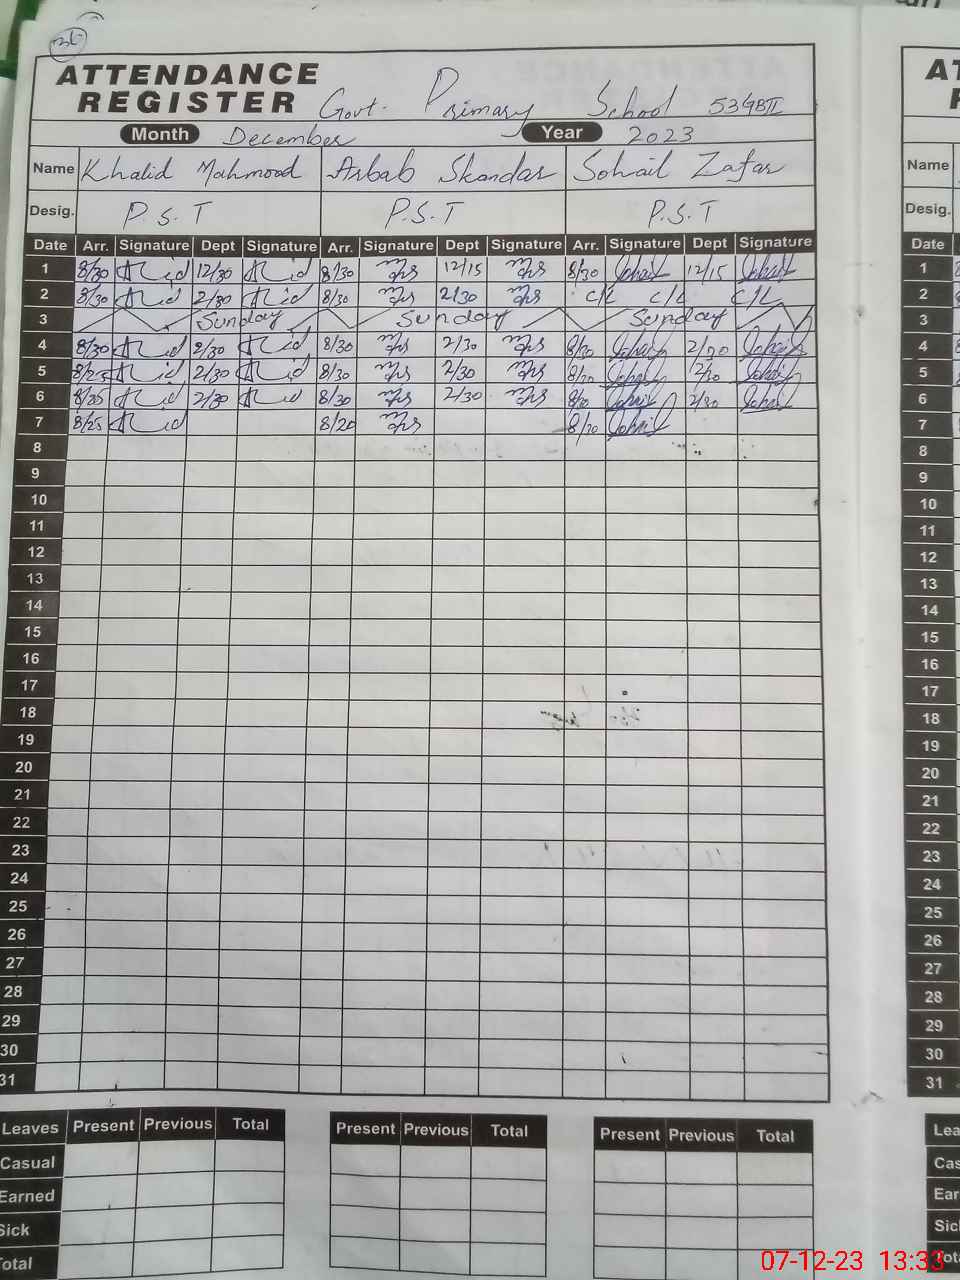 36
ATTENDANCE
REGISTER Govt. Primary School 534GBII
Month December Year 2023
Name Khalid Mahmood Arbab Skandar Sohail Zafar Name
Desig. P.S.T P.S.T P.S.T Desig.
Date Arr. Signature Dept Signature Arr. Signature Dept Signature Arr. Signature Dept Signature Date
1 8/30 12/30 8/30 12/15 8/30 Sohail 12/15 Sohail 1
2 8/30 2/30 8/30 2/30 C/L C/L C/L 2
3 Sunday Sunday Sunday 3
4 8/30 2/30 8/30 2/30 8/30 Sohail 2/30 Sohail 4
5 8/25 2/30 8/30 2/30 Sohail Sohail 5
6 2/30 8/30 2/30 Sohail 2/30 Sohail 6
7 8/25 8/20 8/20 Sohail 7
8 8
9 9
10 10
11 11
12 12
13 13
14 14
15 15
16 16
17 17
18 18
19 19
20 20
21 21
22 22
23 23
24 24
25 25
26 26
27 27
28 28
29 29
30 30
31 31
Leaves Present Previous Total Present Previous Total Present Previous Total
Casual
Earned
Sick
Total
07-12-23 13:33